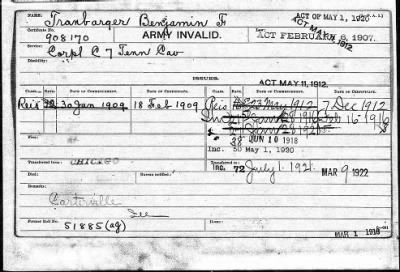 NAME: Tranbarger Benjamin F
ACT OF MAY 1, 1920
Certificate No. 908170
ARMY INVALID.
ACT MAY 11, 1912
Law: ACT FEBRUARY 6, 1907.
Service: Corpl C 7 Tenn Cav
Disability:
ISSUES.
ACT MAY 11, 1912.
CLASS. RATE. DATE OF COMMENCEMENT. DATE OF CERTIFICATE. CLASS. RATE. DATE OF COMMENCEMENT. DATE OF CERTIFICATE.
Reis 12 30 Jan 1909 18 Feb 1909 Reis 23 May 1912 7 Dec 1912
16-1916
38 JUN 10 1918
Inc. 50 May 1, 1920
Transferred from: CHICAGO
Inc. 72 July 1. 1921 MAR 9 1922
Died:
Remarks:
Former Roll No. 51885 (ag)
MAR 1 1916